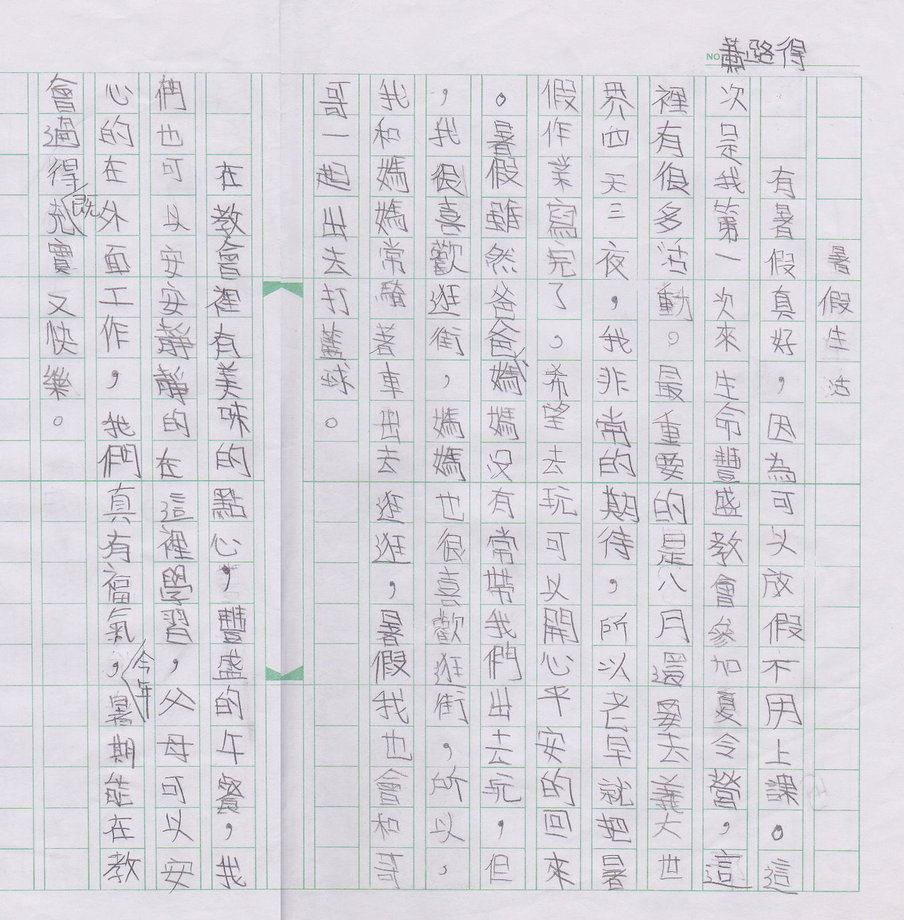 蕭路得
暑假生活
有暑假真好，因為可以放假不用上課。這
次是我第一次來生命豐盛教會參加夏令營，這
裡有很多活動。最重要的是八月還要去義大世
界四天三夜，我非常的期待，所以老早就把暑
假作業寫完了。，希望去玩可以開心平安的回來
。暑假雖然爸爸、媽媽沒有常帶我們出去玩，但
，我很喜歡逛街，媽媽也很喜歡逛街，所以，
我和媽媽常騎著車出去逛逛，暑假我也會和哥
哥一起出去打籃球。
在教會裡有美味的點心，豐盛的午餐，我
們也可以安安靜靜的在這裡學習，父母可以安
心的在外面工作，我們真有福氣，今年暑期能在教
會過得既充實又快樂。